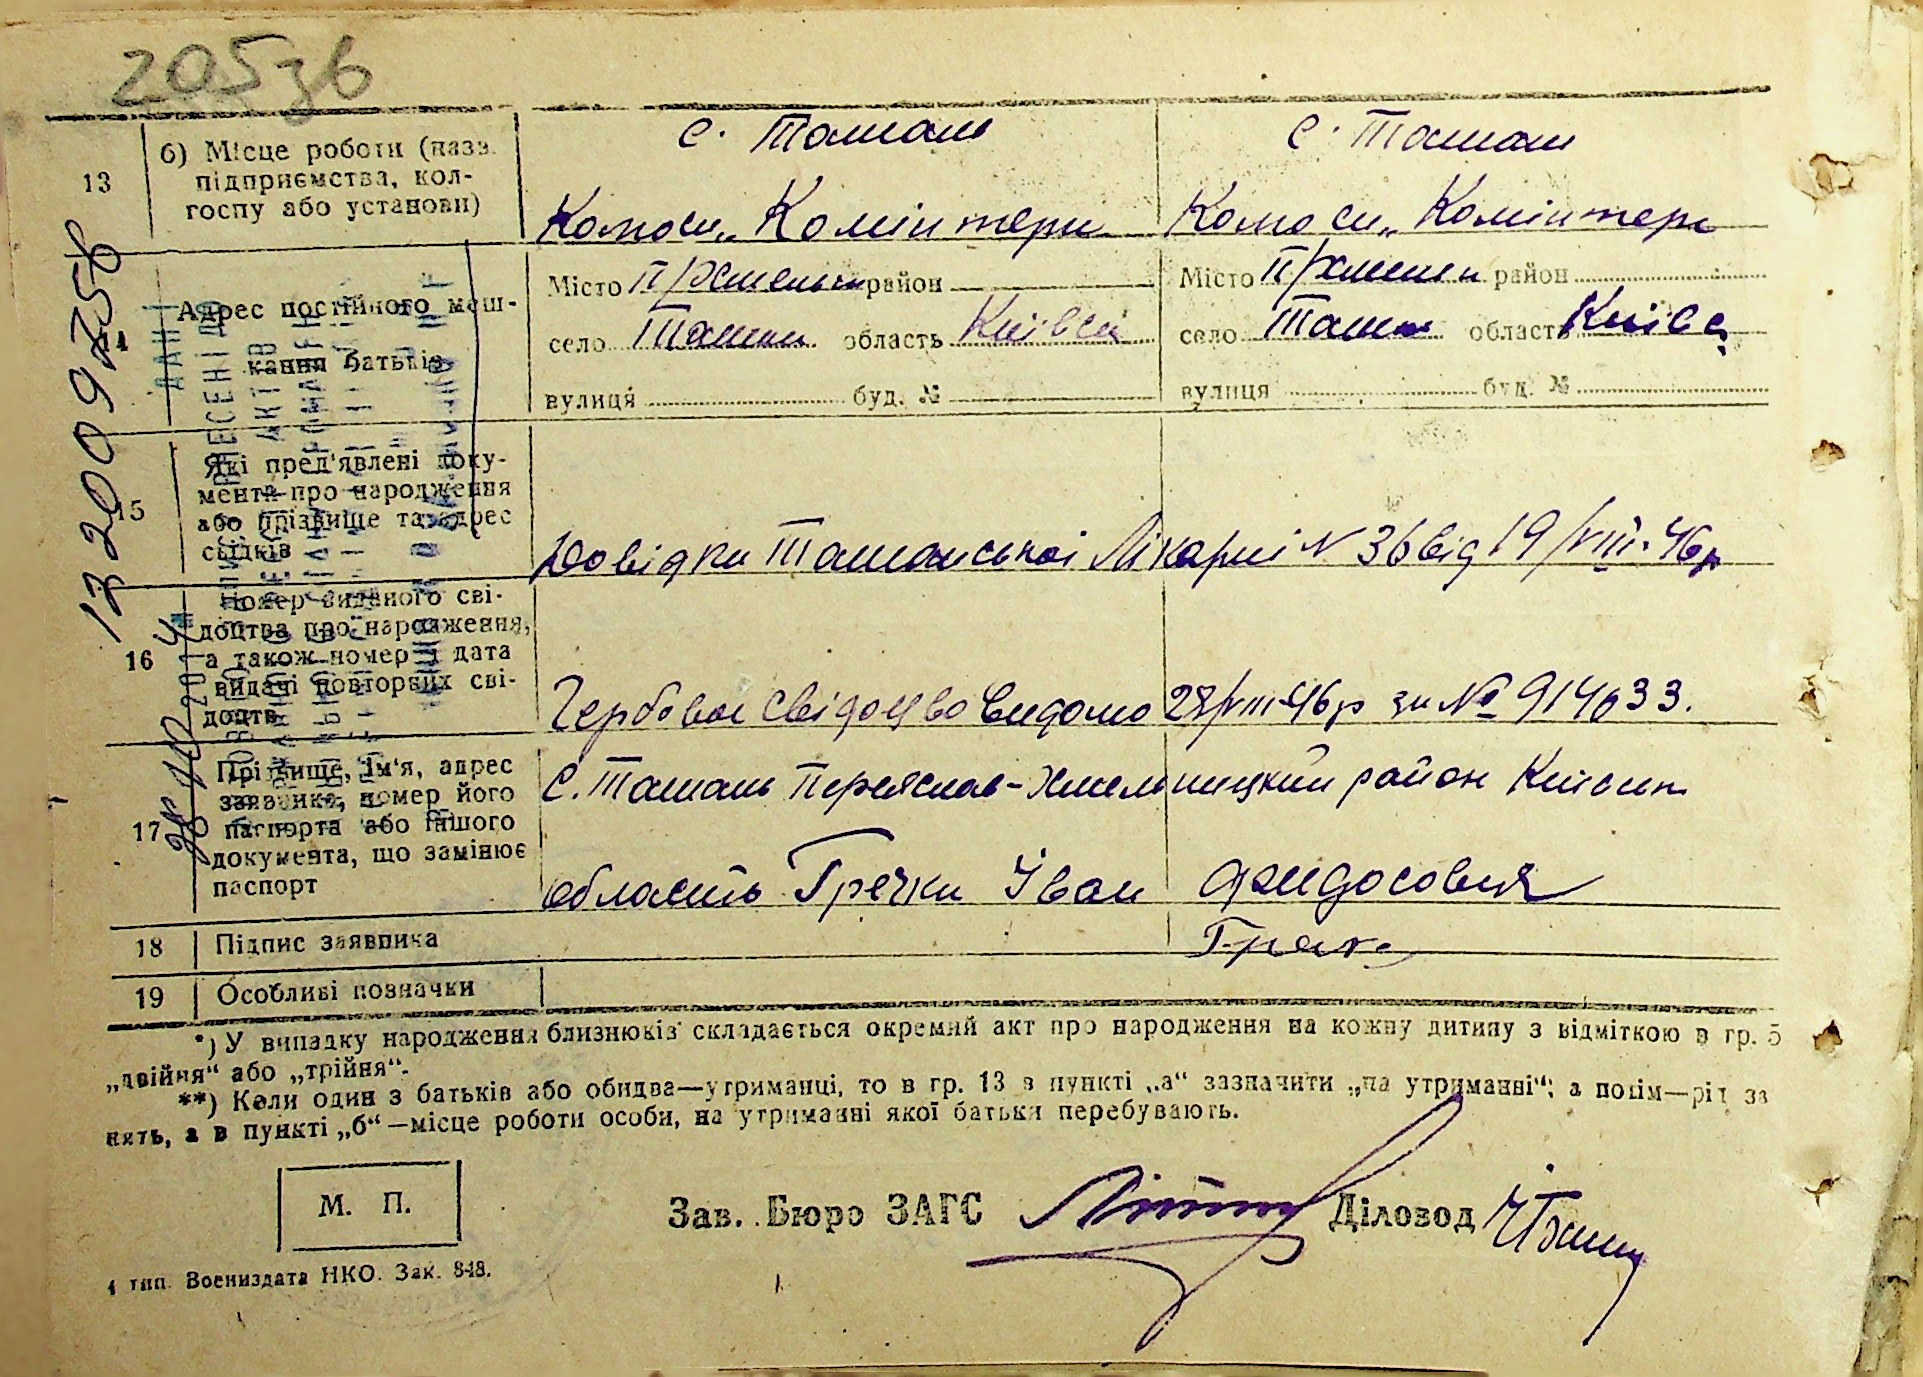 205зв
13
б) Місце роботи (назв.
підприємства, кол-
госпу або установи)
с. Ташань с. Ташань
Колгосп „Комінтерн Колгосп „Комінтерн
14
Адрес постійного меш-
кання батьків
Місто П/Хмельн район Місто П/Хмельн район
село Ташань область Київськ село Ташань область Київськ
вулиця буд. № вулиця буд. №
15
Які пред'явлені доку-
менти про народження
або прізвище та адрес
свідків
Довідки Ташанської Лікарні № 36 від 19/VIII-46р
16
Номер виданого сві-
доцтва про народження,
а також номер і дата
видачі повторних сві-
доцтв
Гербове свідоцтво видано 28/VIII-46р за № 914633.
17
Прізвище, ім'я, адрес
заявника, номер його
паспорта або іншого
документа, що замінює
паспорт
с. Ташань Переяслав-Хмельницкий район Київськ
область Гречка Іван Фидосович
18 Підпис заявника
19 Особливі позначки
*) У випадку народження близнюків складається окремий акт про народження на кожну дитину з відміткою в гр. 5
„двійня“ або „трійня“.
**) Коли один з батьків або обидва—утриманці, то в гр. 13 в пункті „а“ зазначити „на утриманні“; а потім—рід за
нять, а в пункті „б“—місце роботи особи, на утриманні якої батьки перебувають.
М. П.
Зав. Бюро ЗАГС Діловод
4 тип. Воениздата НКО. Зак. 848.